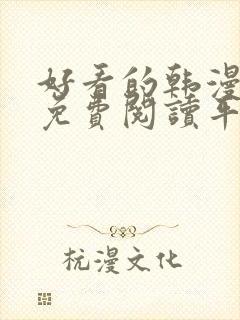 好看的韩漫
免費閱讀平
杭漫文化